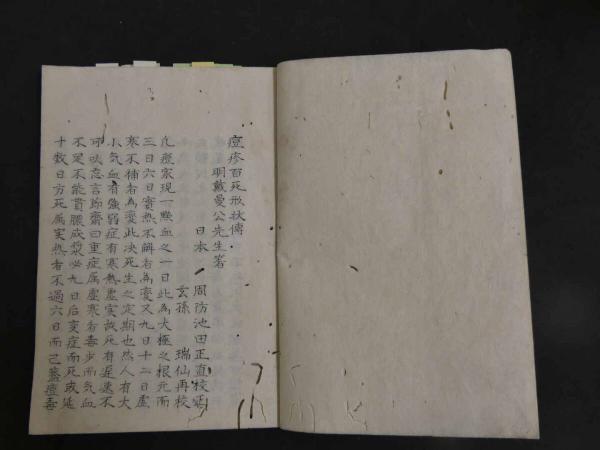 痘疹百死形状傳
明戴曼公先生著
日本 周防池田正直校正
玄孫 瑞仙再校
凡痘家現一點血之一日此為大極之根元而
三日六日實熱不解者為変又九日十二日虚
寒不補者為変此决死生之定期也然人有大
小気血有強弱症有寒熱虚実故死有遅速不
可以㮣言節齋曰重症属虚寒者毒少而気血
不足不能貫膿成漿必九日后变症而死或延
十数日方死属実熱者不過六日而已蓋痘毒